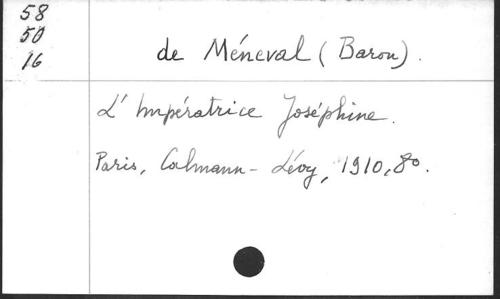 58
50
16
de Méneval (Baron).
L'Impératrice Joséphine.
Paris, Calmann-Lévy, 1910, 8º.